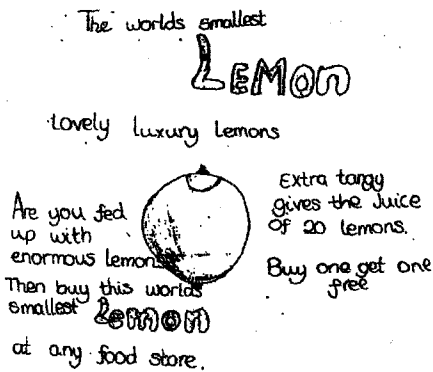 The worlds smallest
LEMON
Lovely luxury lemons
Are you fed
up with
enormous lemons
Then buy this worlds
smallest Lemon
at any food store.
Extra tangy
gives the Juice
of 20 lemons.
Buy one get one
free